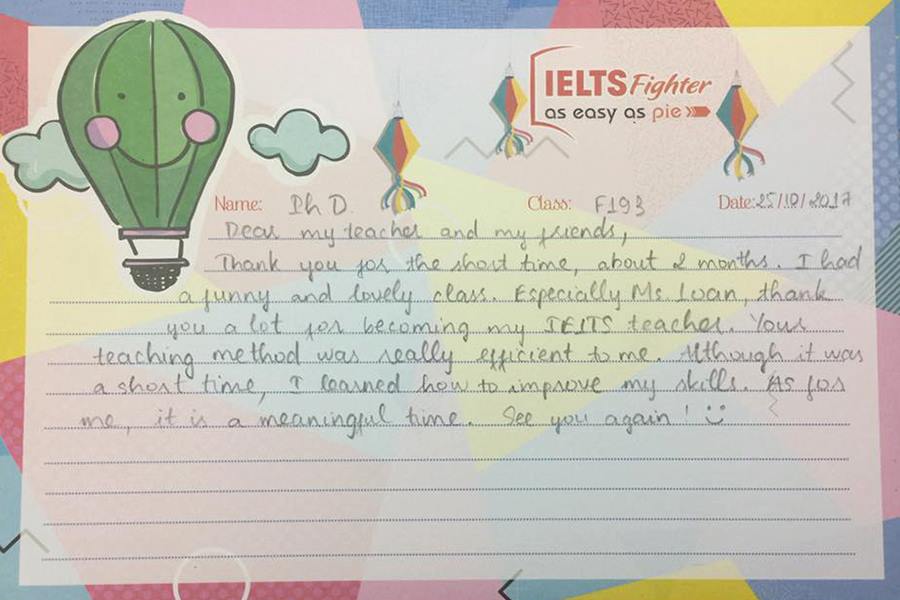 IELTS Fighter
as easy as pie
Name: Ph D. Class: F193 Date: 25/10/2017
Dear my teacher and my friends,
Thank you for the short time, about 2 months. I had
a funny and lovely class. Especially Ms. Loan, thank
you a lot for becoming my IELTS teacher. Your
teaching method was really efficient to me. Although it was
a short time, I learned how to improve my skills. As for
me, it is a meaningful time. See you again ! :)